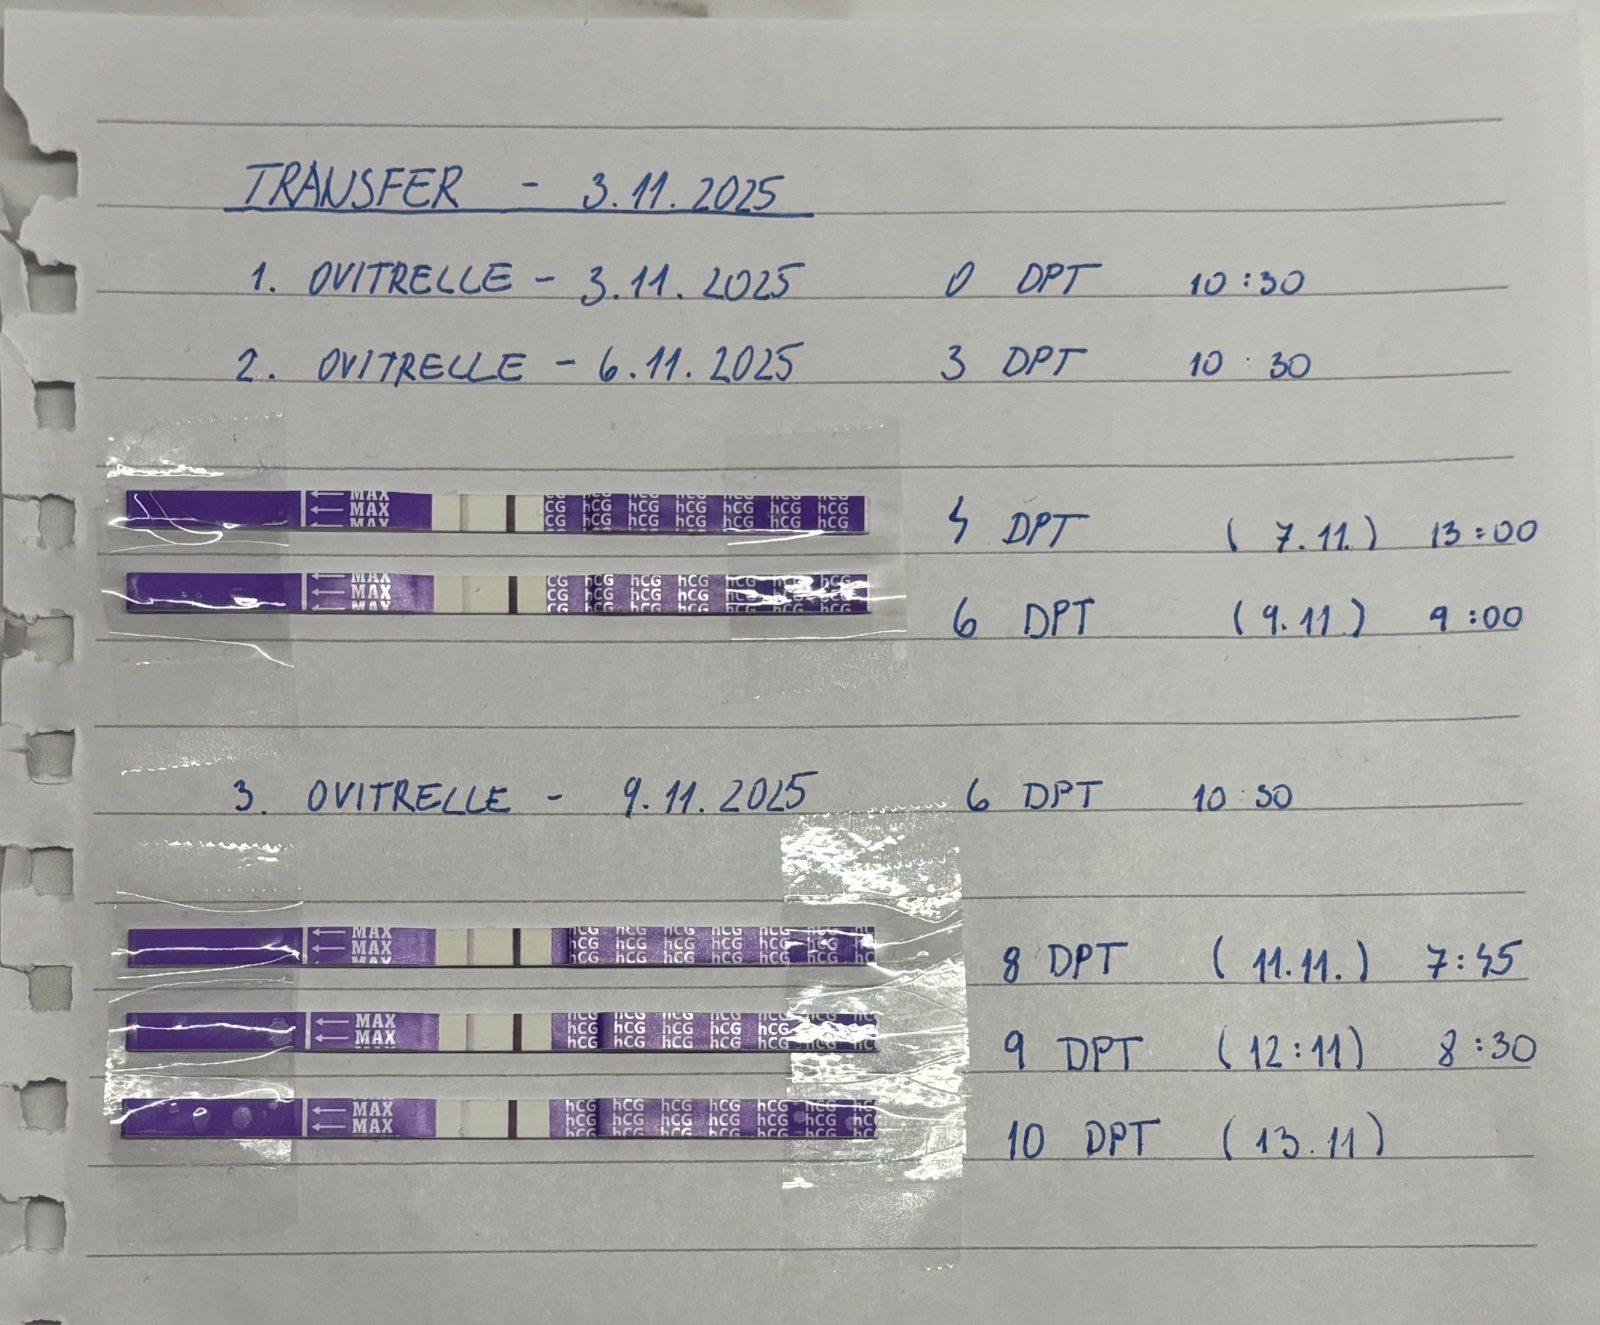 TRANSFER - 3.11.2025
1. OVITRELLE - 3.11.2025 0 DPT 10:30
2. OVITRELLE - 6.11.2025 3 DPT 10:30
MAX
MAX
MAX
CG hCG hCG hCG hCG hCG hCG
CG hCG hCG hCG hCG hCG hCG
CG hCG hCG hCG hCG hCG hCG
4 DPT (7.11.) 13:00
MAX
MAX
MAX
CG hCG hCG hCG hCG hCG hCG
CG hCG hCG hCG hCG hCG hCG
CG hCG hCG hCG hCG hCG hCG
6 DPT (9.11.) 9:00
3. OVITRELLE - 9.11.2025 6 DPT 10:30
MAX
MAX
MAX
hCG hCG hCG hCG hCG hCG hC
hCG hCG hCG hCG hCG hCG hC
hCG hCG hCG hCG hCG hCG hC
8 DPT (11.11.) 7:45
MAX
MAX
hCG hCG hCG hCG hCG hCG hC
hCG hCG hCG hCG hCG hCG hC
hCG hCG hCG hCG hCG hCG hC
9 DPT (12:11) 8:30
MAX
MAX
hCG hCG hCG hCG hCG hCG hC
hCG hCG hCG hCG hCG hCG hC
hCG hCG hCG hCG hCG hCG hC
10 DPT (13.11)